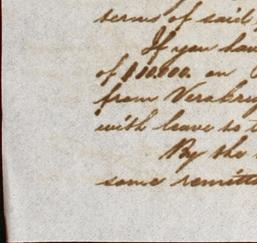 terms of said
If you hav
of $10.000. on
from Verabru
with leave to t
By the
some remitta